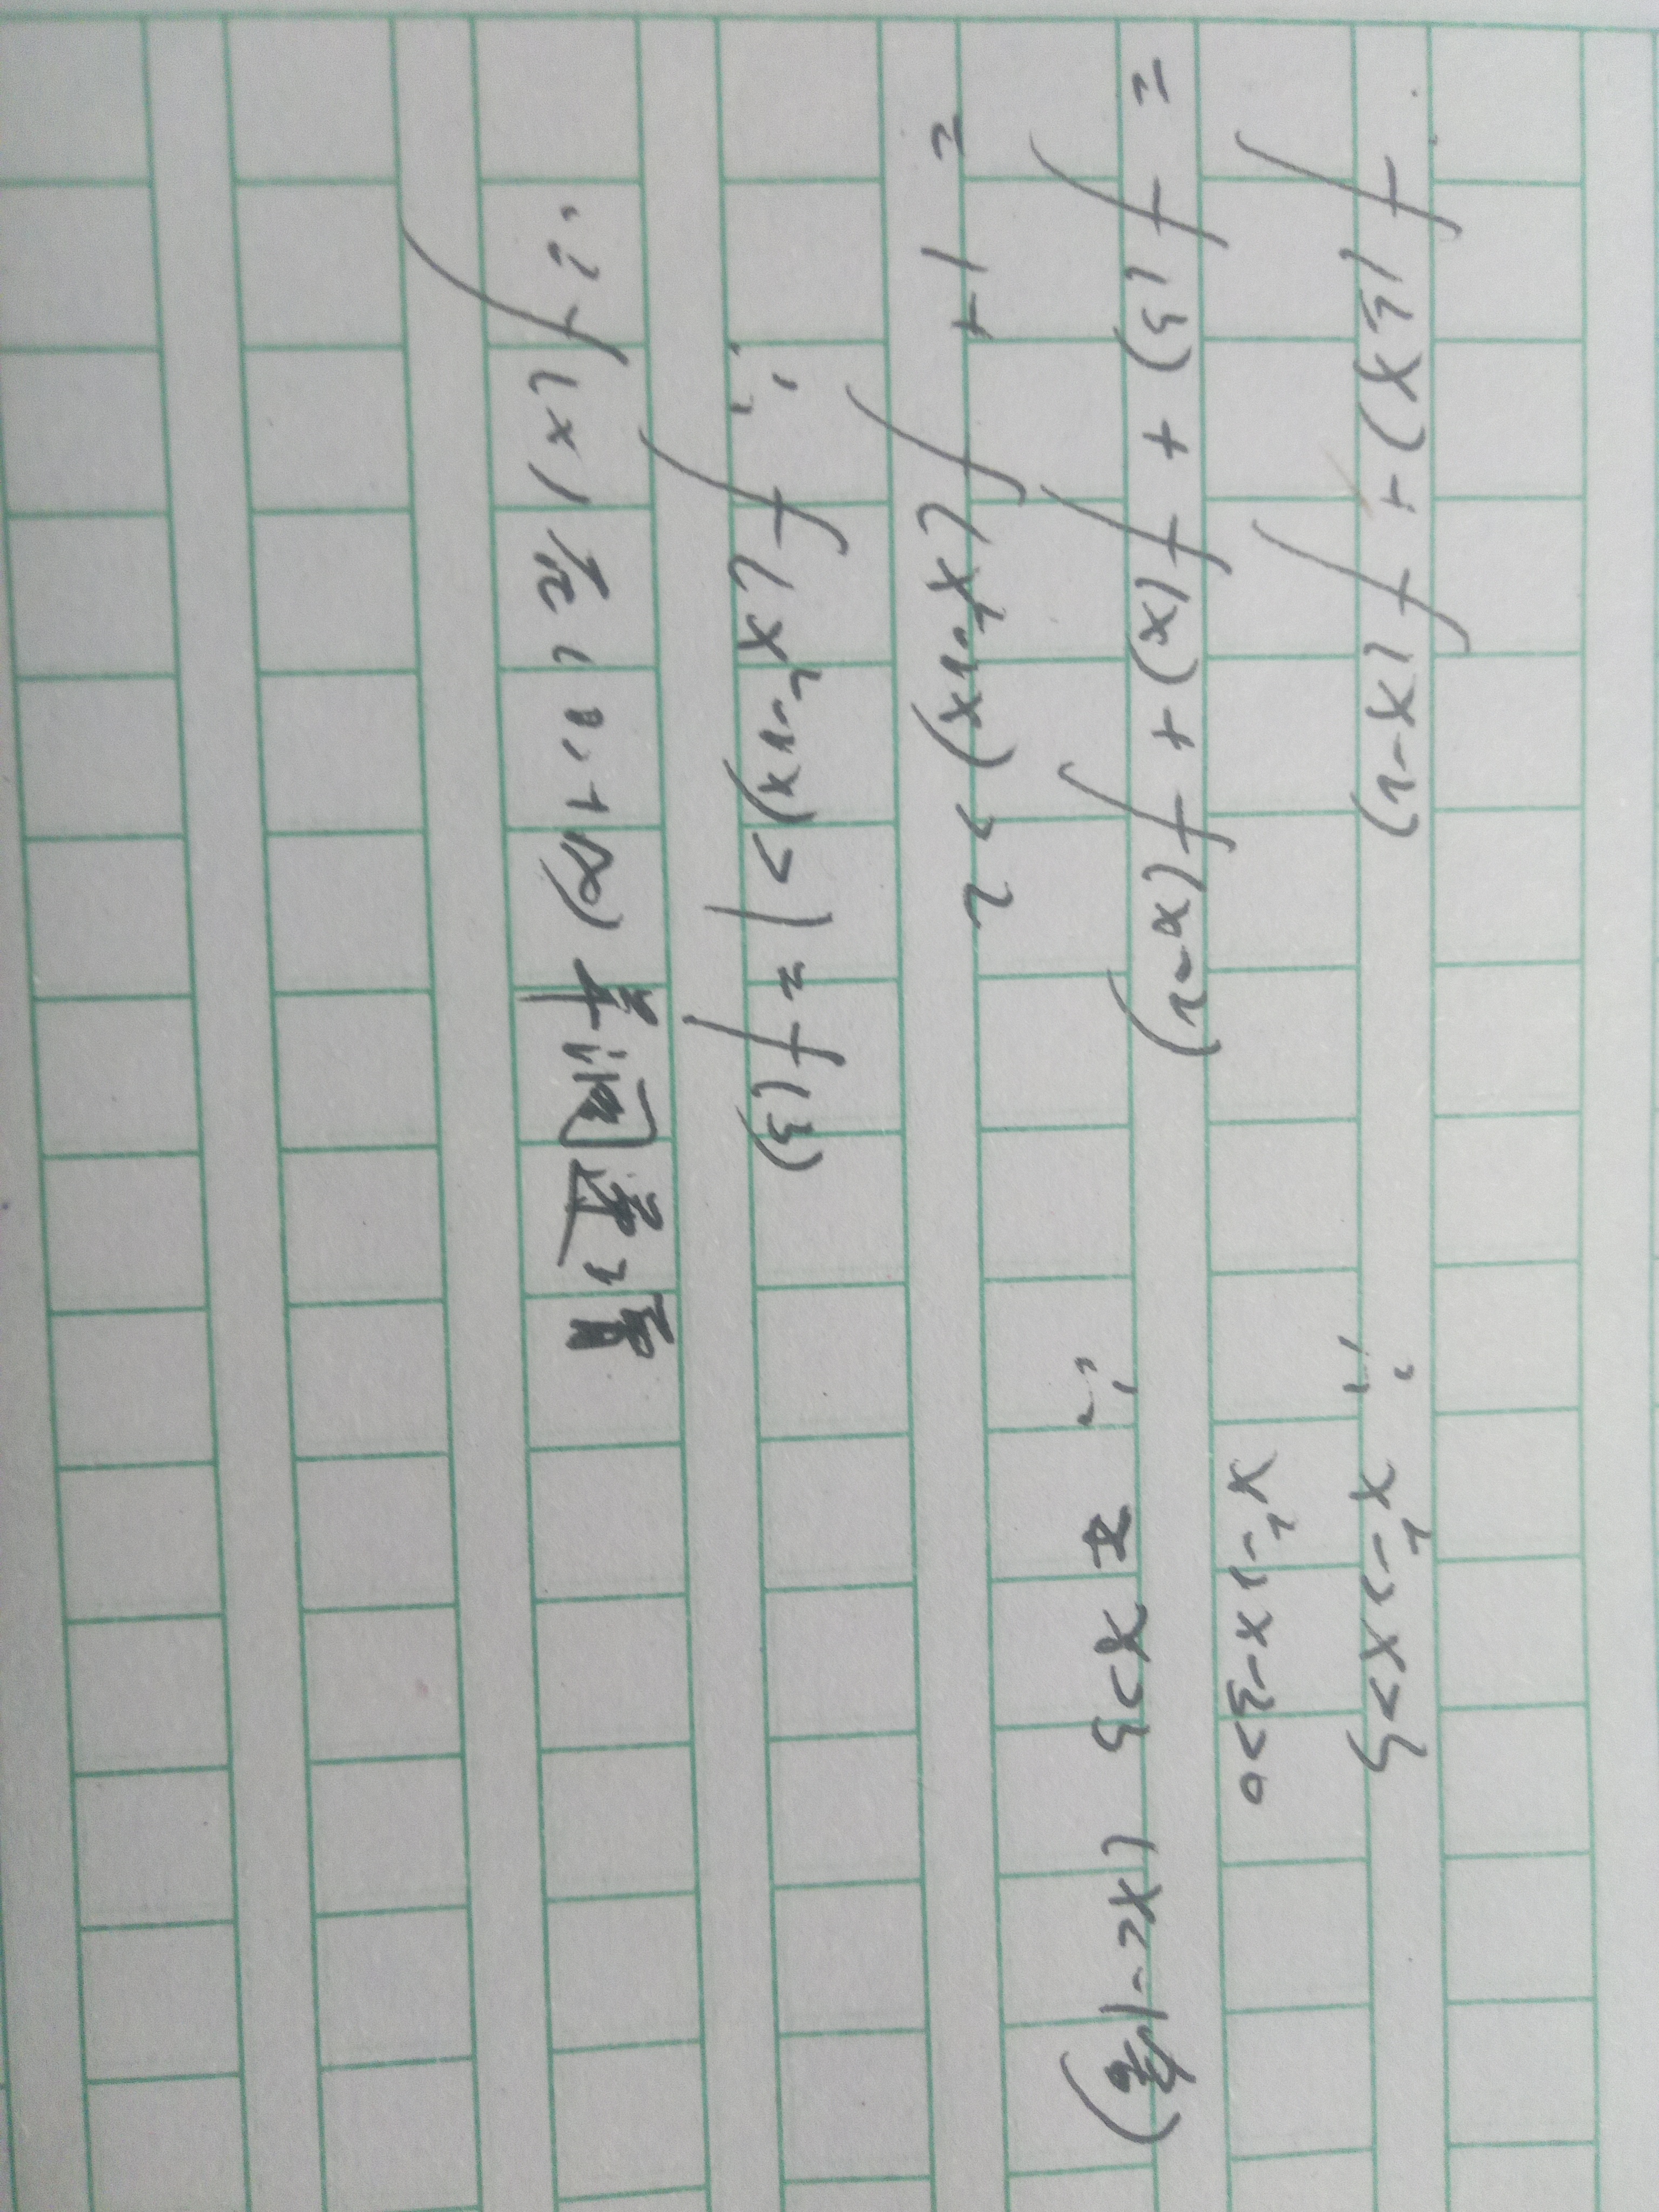 f(3x)+f(x-2)
=f(3)+f(x)+f(x-2)
=1+f(x²-2x)>2
∴f(x²-2x)>1=f(3)
∵f(x)在(0,+∞)单调递增
∴x²-2x>3
x²-2x-3>0
∴ x>3 (x<-1舍)